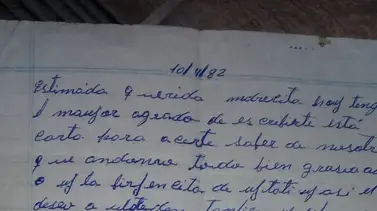 10/4/82
estimada y querida madrecita hoy teng
l mayor agrado de escribirte está
carta para acerte saber de nosotr
que andamos todo bien grasia a
o y la birjencita de
deseo a ustedes tambien